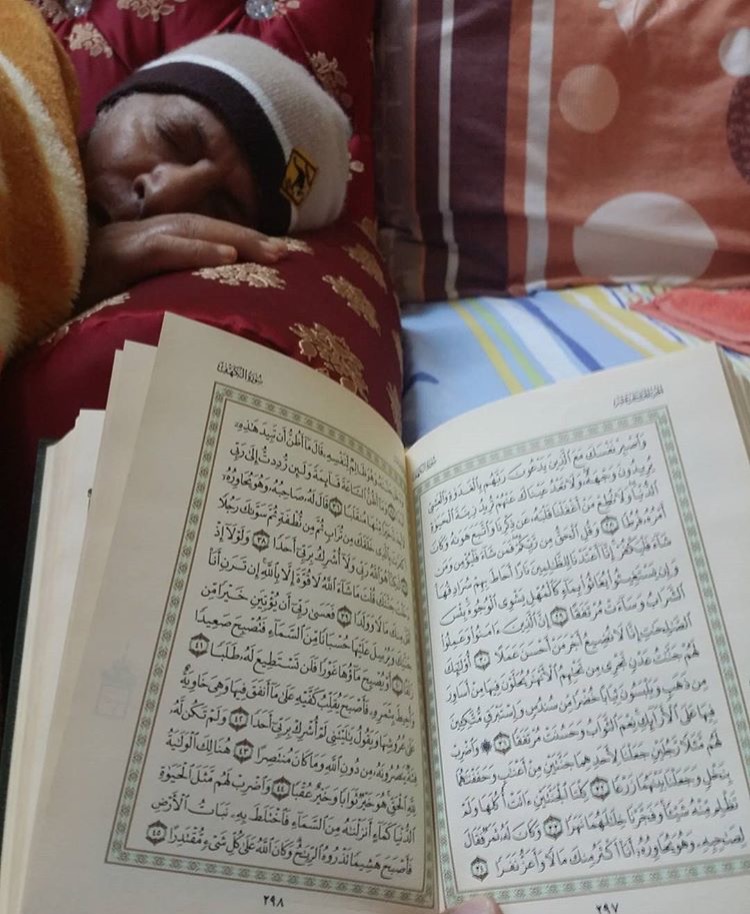 الجزء الخامس عشر
سورة الكهف
وَٱصْبِرْ نَفْسَكَ مَعَ ٱلَّذِينَ يَدْعُونَ رَبَّهُم بِٱلْغَدَوٰةِ وَٱلْعَشِىِّ
يُرِيدُونَ وَجْهَهُۥ وَلَا تَعْدُ عَيْنَاكَ عَنْهُمْ تُرِيدُ زِينَةَ ٱلْحَيَوٰةِ
ٱلدُّنْيَا وَلَا تُطِعْ مَنْ أَغْفَلْنَا قَلْبَهُۥ عَن ذِكْرِنَا وَٱتَّبَعَ هَوَىٰهُ وَكَانَ
أَمْرُهُۥ فُرُطًا ٢٨ وَقُلِ ٱلْحَقُّ مِن رَّبِّكُمْ فَمَن شَآءَ فَلْيُؤْمِن وَمَن
شَآءَ فَلْيَكْفُرْ إِنَّآ أَعْتَدْنَا لِلظَّٰلِمِينَ نَارًا أَحَاطَ بِهِمْ سُرَادِقُهَا
وَإِن يَسْتَغِيثُوا۟ يُغَاثُوا۟ بِمَآءٍ كَٱلْمُهْلِ يَشْوِى ٱلْوُجُوهَ بِئْسَ
ٱلشَّرَابُ وَسَآءَتْ مُرْتَفَقًا ٢٩ إِنَّ ٱلَّذِينَ ءَامَنُوا۟ وَعَمِلُوا۟
ٱلصَّٰلِحَٰتِ إِنَّا لَا نُضِيعُ أَجْرَ مَنْ أَحْسَنَ عَمَلًا ٣٠ أُو۟لَٰٓئِكَ
لَهُمْ جَنَّٰتُ عَدْنٍ تَجْرِى مِن تَحْتِهِمُ ٱلْأَنْهَٰرُ يُحَلَّوْنَ فِيهَا مِنْ أَسَاوِرَ
مِن ذَهَبٍ وَيَلْبَسُونَ ثِيَابًا خُضْرًا مِّن سُندُسٍ وَإِسْتَبْرَقٍ مُّتَّكِـِٔينَ
فِيهَا عَلَى ٱلْأَرَآئِكِ نِعْمَ ٱلثَّوَابُ وَحَسُنَتْ مُرْتَفَقًا ٣١ ۞ وَٱضْرِبْ
لَهُم مَّثَلًا رَّجُلَيْنِ جَعَلْنَا لِأَحَدِهِمَا جَنَّتَيْنِ مِنْ أَعْنَٰبٍ وَحَفَفْنَٰهُمَا
بِنَخْلٍ وَجَعَلْنَا بَيْنَهُمَا زَرْعًا ٣٢ كِلْتَا ٱلْجَنَّتَيْنِ ءَاتَتْ أُكُلَهَا وَلَمْ
تَظْلِم مِّنْهُ شَيْـًٔا وَفَجَّرْنَا خِلَٰلَهُمَا نَهَرًا ٣٣ وَكَانَ لَهُۥ ثَمَرٌ فَقَالَ
لِصَٰحِبِهِۦ وَهُوَ يُحَاوِرُهُۥٓ أَنَا۠ أَكْثَرُ مِنكَ مَالًا وَأَعَزُّ نَفَرًا ٣٤
٢٩٧
سورة الكهف
وَهُوَ ظَالِمٌ لِّنَفْسِهِۦ قَالَ مَآ أَظُنُّ أَن تَبِيدَ هَٰذِهِۦٓ
وَمَآ أَظُنُّ ٱلسَّاعَةَ قَآئِمَةً وَلَئِن رُّدِدتُّ إِلَىٰ رَبِّى
خَيْرًا مِّنْهَا مُنقَلَبًا ٣٦ قَالَ لَهُۥ صَاحِبُهُۥ وَهُوَ يُحَاوِرُهُۥٓ
أَكَفَرْتَ بِٱلَّذِى خَلَقَكَ مِن تُرَابٍ ثُمَّ مِن نُّطْفَةٍ ثُمَّ سَوَّىٰكَ رَجُلًا
هُوَ ٱللَّهُ رَبِّى وَلَآ أُشْرِكُ بِرَبِّىٓ أَحَدًا ٣٨ وَلَوْلَآ إِذْ
دَخَلْتَ جَنَّتَكَ قُلْتَ مَا شَآءَ ٱللَّهُ لَا قُوَّةَ إِلَّا بِٱللَّهِ إِن تَرَنِ أَنَا۠
مِنكَ مَالًا وَوَلَدًا ٣٩ فَعَسَىٰ رَبِّىٓ أَن يُؤْتِيَنِ خَيْرًا مِّن
جَنَّتِكَ وَيُرْسِلَ عَلَيْهَا حُسْبَانًا مِّنَ ٱلسَّمَآءِ فَتُصْبِحَ صَعِيدًا
زَلَقًا ٤٠ أَوْ يُصْبِحَ مَآؤُهَا غَوْرًا فَلَن تَسْتَطِيعَ لَهُۥ طَلَبًا ٤١
وَأُحِيطَ بِثَمَرِهِۦ فَأَصْبَحَ يُقَلِّبُ كَفَّيْهِ عَلَىٰ مَآ أَنفَقَ فِيهَا وَهِىَ خَاوِيَةٌ
عَلَىٰ عُرُوشِهَا وَيَقُولُ يَٰلَيْتَنِى لَمْ أُشْرِكْ بِرَبِّىٓ أَحَدًا ٤٢ وَلَمْ تَكُن لَّهُۥ
فِئَةٌ يَنصُرُونَهُۥ مِن دُونِ ٱللَّهِ وَمَا كَانَ مُنتَصِرًا ٤٣ هُنَالِكَ ٱلْوَلَٰيَةُ
لِلَّهِ ٱلْحَقِّ هُوَ خَيْرٌ ثَوَابًا وَخَيْرٌ عُقْبًا ٤٤ وَٱضْرِبْ لَهُم مَّثَلَ ٱلْحَيَوٰةِ
ٱلدُّنْيَا كَمَآءٍ أَنزَلْنَٰهُ مِنَ ٱلسَّمَآءِ فَٱخْتَلَطَ بِهِۦ نَبَاتُ ٱلْأَرْضِ
فَأَصْبَحَ هَشِيمًا تَذْرُوهُ ٱلرِّيَٰحُ وَكَانَ ٱللَّهُ عَلَىٰ كُلِّ شَىْءٍ مُّقْتَدِرًا ٤٥
٢٩٨